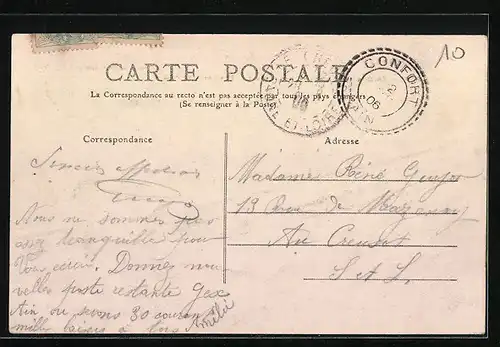 10
CARTE POSTALE
La Correspondance au recto n'est pas acceptée par tous les pays étrangers
(Se renseigner à la Poste)
CONFORT
AIN
06
SAÔNE ET LOIRE
Correspondance
Adresse
Sincère affection
Nous ne sommes pas
assez tranquille pour
vous écrire. Donnez nou-
velles poste restante Gex
Ain ou serons 30 courant
mille baisers à tous
Amélie
Madame René
19 Rue de Mazenay
Au Creusot
S et L.